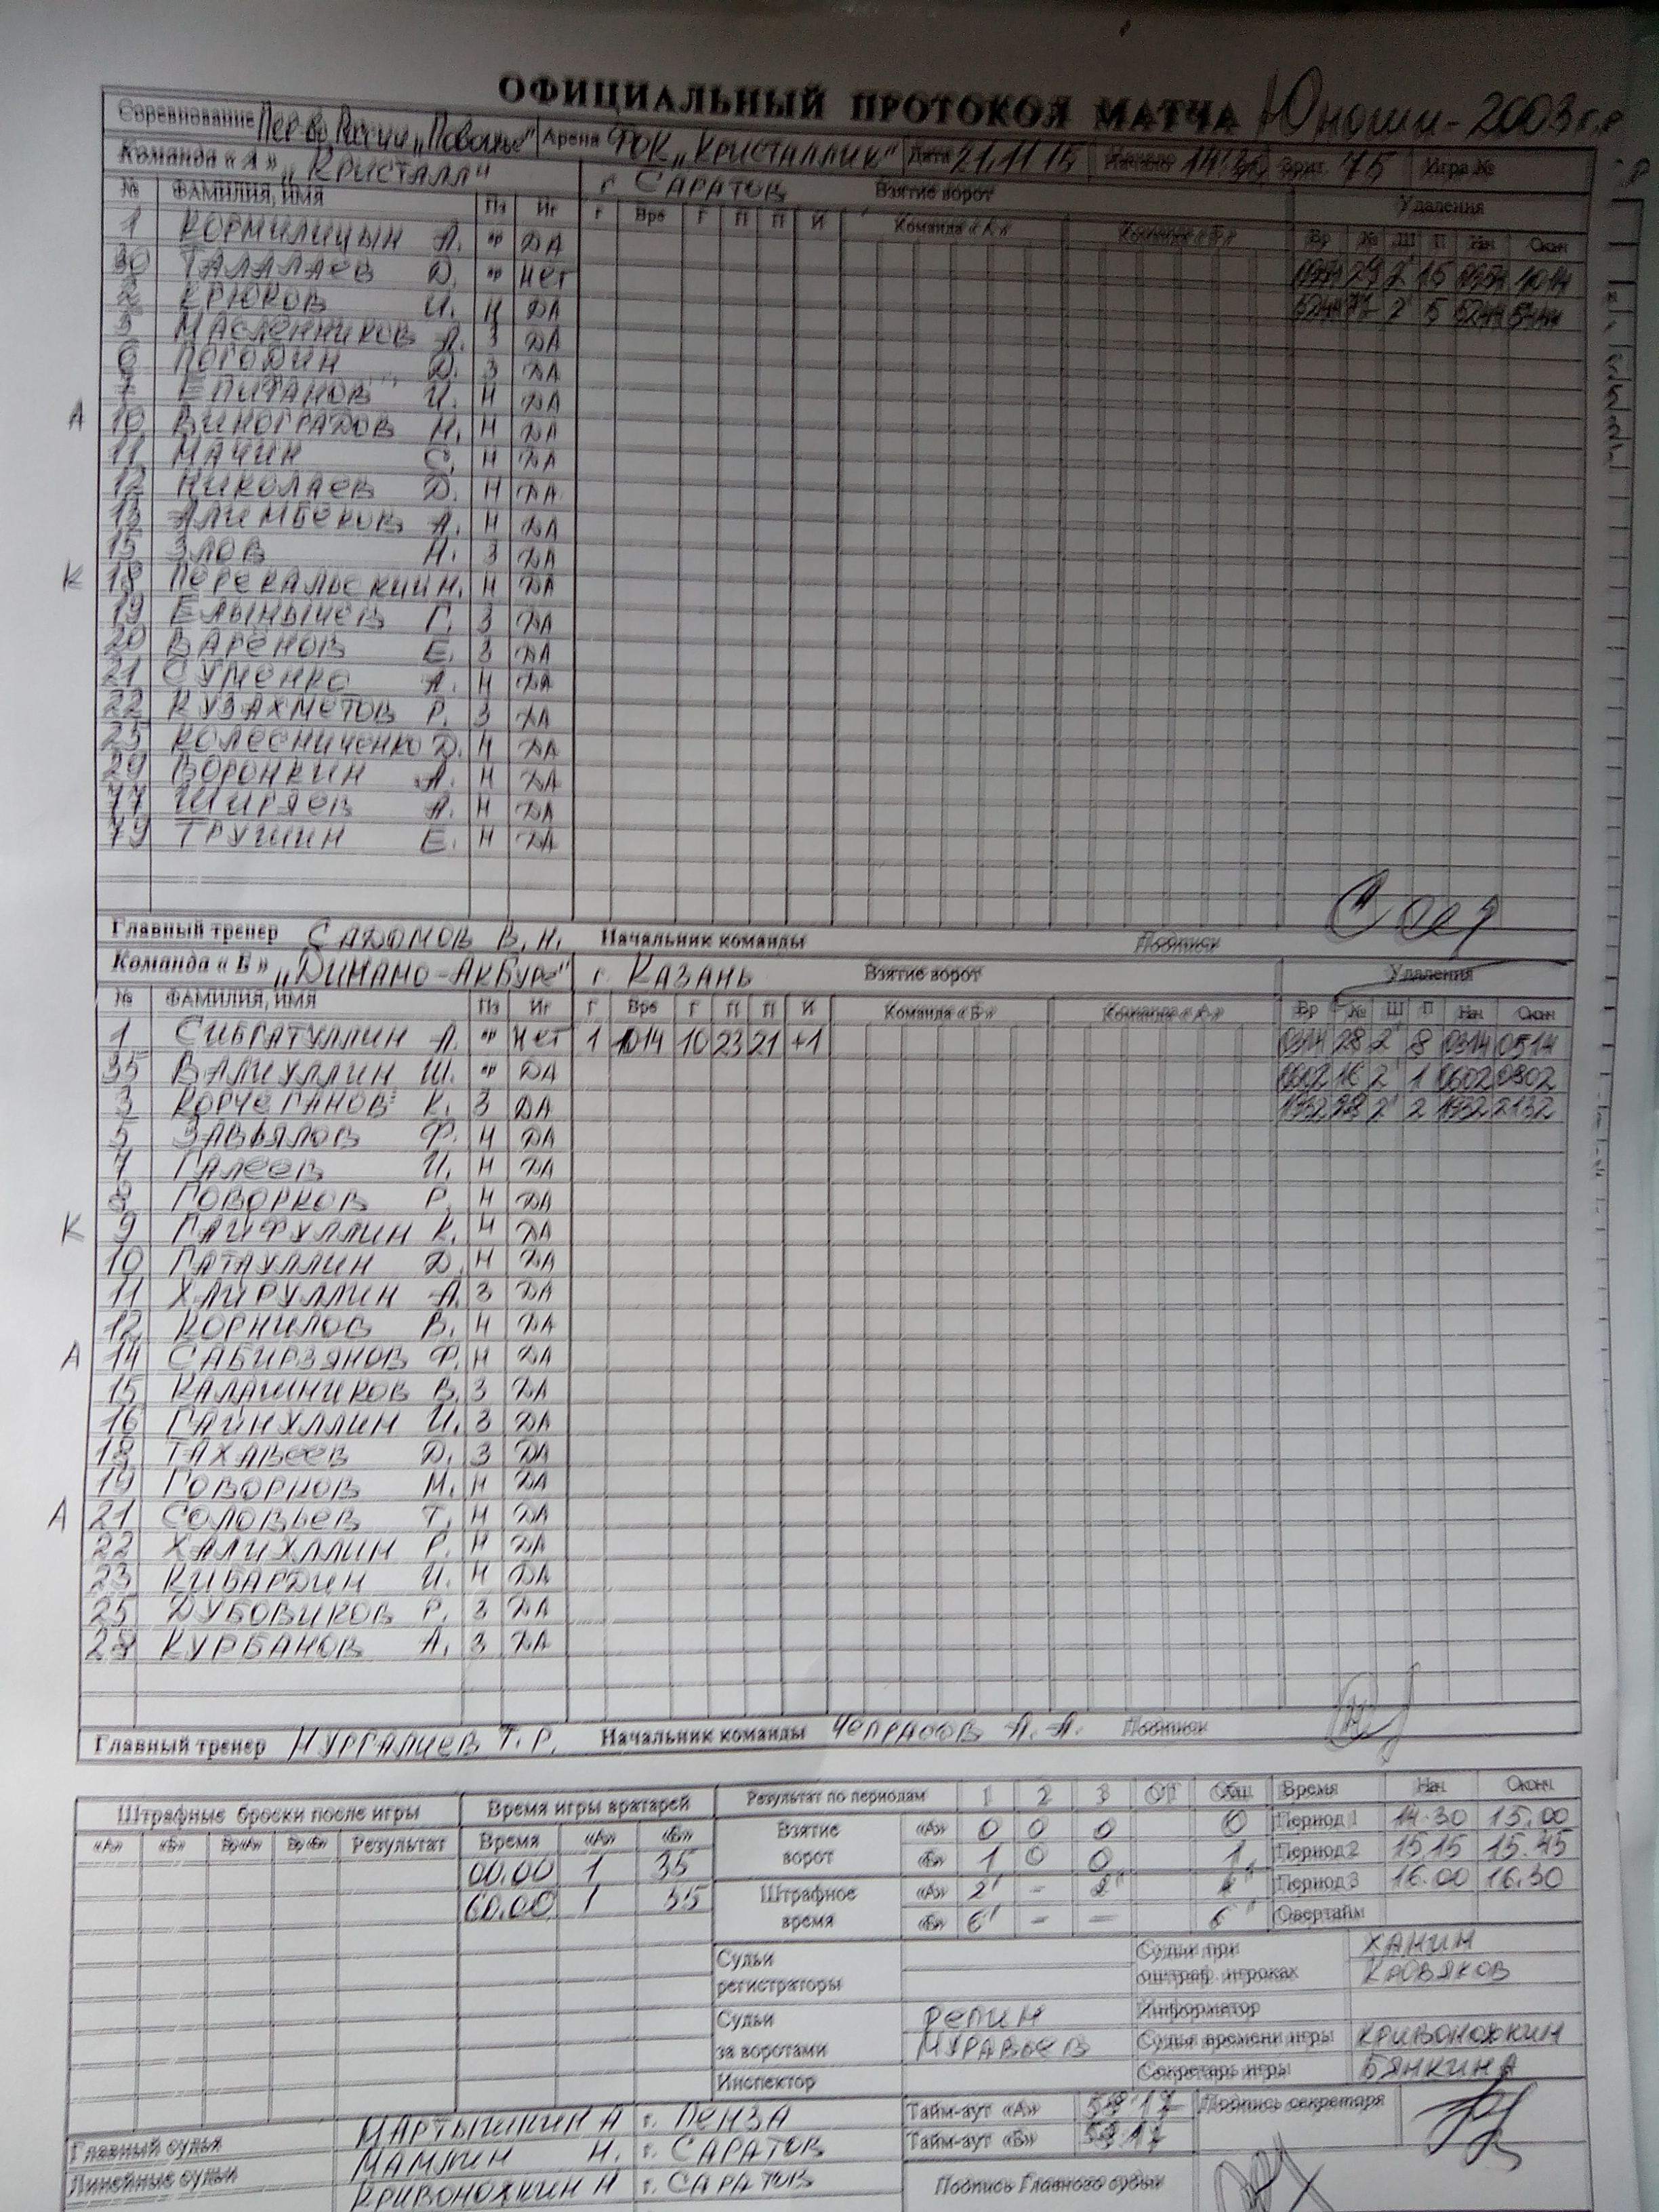 ОФИЦИАЛЬНЫЙ ПРОТОКОЛ МАТЧА Юноши-2003 г.р
Соревнование Перв. России „Поволжье" Арена ФОК „Кристаллик" Дата 21.11.15 Начало 14:30 Зрит. 75 Игра №
Команда «А» „Кристалл" г. САРАТОВ Взятие ворот Удаления
№ ФАМИЛИЯ, ИМЯ Пз Иг Г Вре Г П П И Команда «А» Команда «Б» Вр № Ш П Нач Окон
1 КОРМИЛИЦЫН А. вр ДА
30 ТАЛАЛАЕВ Д. вр НЕТ 29 2' 15 1014
2 КРЮКОВ И. Н ДА 5244 77 2' 5 5244 5444
5 МАСЛЕННИКОВ А. З ДА
6 ПОГОДИН Д. З ДА
7 ЕПИФАНОВ И. Н ДА
А 10 ВИНОГРАДОВ Н. Н ДА
11 МАЧИН С. Н ДА
12 НИКОЛАЕВ Д. Н ДА
13 АЛИМБЕКОВ А. Н ДА
15 ЗЛОВ Н. З ДА
К 18 ПЕРЕКАЛЬСКИЙ Н. Н ДА
19 ЕЛЫНЫЧЕВ Г. З ДА
20 ВАРЕНОВ Е. З ДА
21 СУМЕНКО А. Н ДА
22 КУЗАХМЕТОВ Р. З ДА
25 КОЛЕСНИЧЕНКО Д. Н ДА
29 ВОРОНКИН А. Н ДА
77 ШИРЯЕВ А. Н ДА
79 ТРУШИН Е. Н ДА
Главный тренер САДОМОВ В.Н. Начальник команды Подписи
Команда «Б» „ДИНАМО-АКБУРЕ" г. КАЗАНЬ Взятие ворот Удаления
№ ФАМИЛИЯ, ИМЯ Пз Иг Г Вре Г П П И Команда «Б» Команда «А» Вр № Ш П Нач Окон
1 СИБГАТУЛЛИН А. вр НЕТ 1 1014 10 23 21 +1 0314 28 2' 8 0314 0514
35 ВАЛИУЛЛИН Ш. вр ДА 0602 16 2' 1 0602 0802
3 КОРЧЕГАНОВ К. З ДА 1932 28 2' 2 1932 2132
5 ЗАВЬЯЛОВ Ф. Н ДА
7 ГАЛЕЕВ И. Н ДА
8 ГОВОРКОВ Р. Н ДА
К 9 ГАЙФУЛЛИН К. Н ДА
10 ГАТАУЛЛИН Д. Н ДА
11 ХАЙРУЛЛИН А. З ДА
12 КОРНИЛОВ В. Н ДА
А 14 САБИРЗЯНОВ Ф. Н ДА
15 КАЛАШНИКОВ В. З ДА
16 ГАЙНУЛЛИН И. З ДА
18 ТАХАВЕЕВ Д. З ДА
19 ГОВОРНОВ М. Н ДА
А 21 СОЛОВЬЕВ Т. Н ДА
22 ХАЛИУЛЛИН Р. Н ДА
23 КИБАРДИН И. Н ДА
25 ДУБОВИКОВ Р. З ДА
28 КУРБАНОВ А. З ДА
Главный тренер НУРГАЛИЕВ Т.Р. Начальник команды ЧЕПРАСОВ А.А. Подписи
Штрафные броски после игры Время игры вратарей Результат по периодам 1 2 3 ОТ Общ Время Нач Оконч
«А» «Б» Вр«А» Вр«Б» Результат Время «А» «Б» Взятие ворот «А» 0 0 0 0 Период 1 14.30 15.00
00.00 1 35 «Б» 1 0 0 1 Период 2 15.15 15.45
60.00 1 35 Штрафное время «А» 2' - 2' 4' Период 3 16.00 16.30
«Б» 6' - - 6' Овертайм
Судьи регистраторы Судьи при оштраф. игроках ХАНИН
КРОВЯКОВ
Судьи за воротами РЕПИН Информатор
МУРАВЬЕВ Судья времени игры КРИВОНОЖКИН
Инспектор Секретарь игры БЯНКИНА
Тайм-аут «А» 59.17 Подпись секретаря
Главный судья МАРТЫШКИН А г. ПЕНЗА Тайм-аут «Б» 59.17
Линейные судьи МАМЛИН Н. г. САРАТОВ
КРИВОНОЖКИН Н г. САРАТОВ Подпись Главного судьи